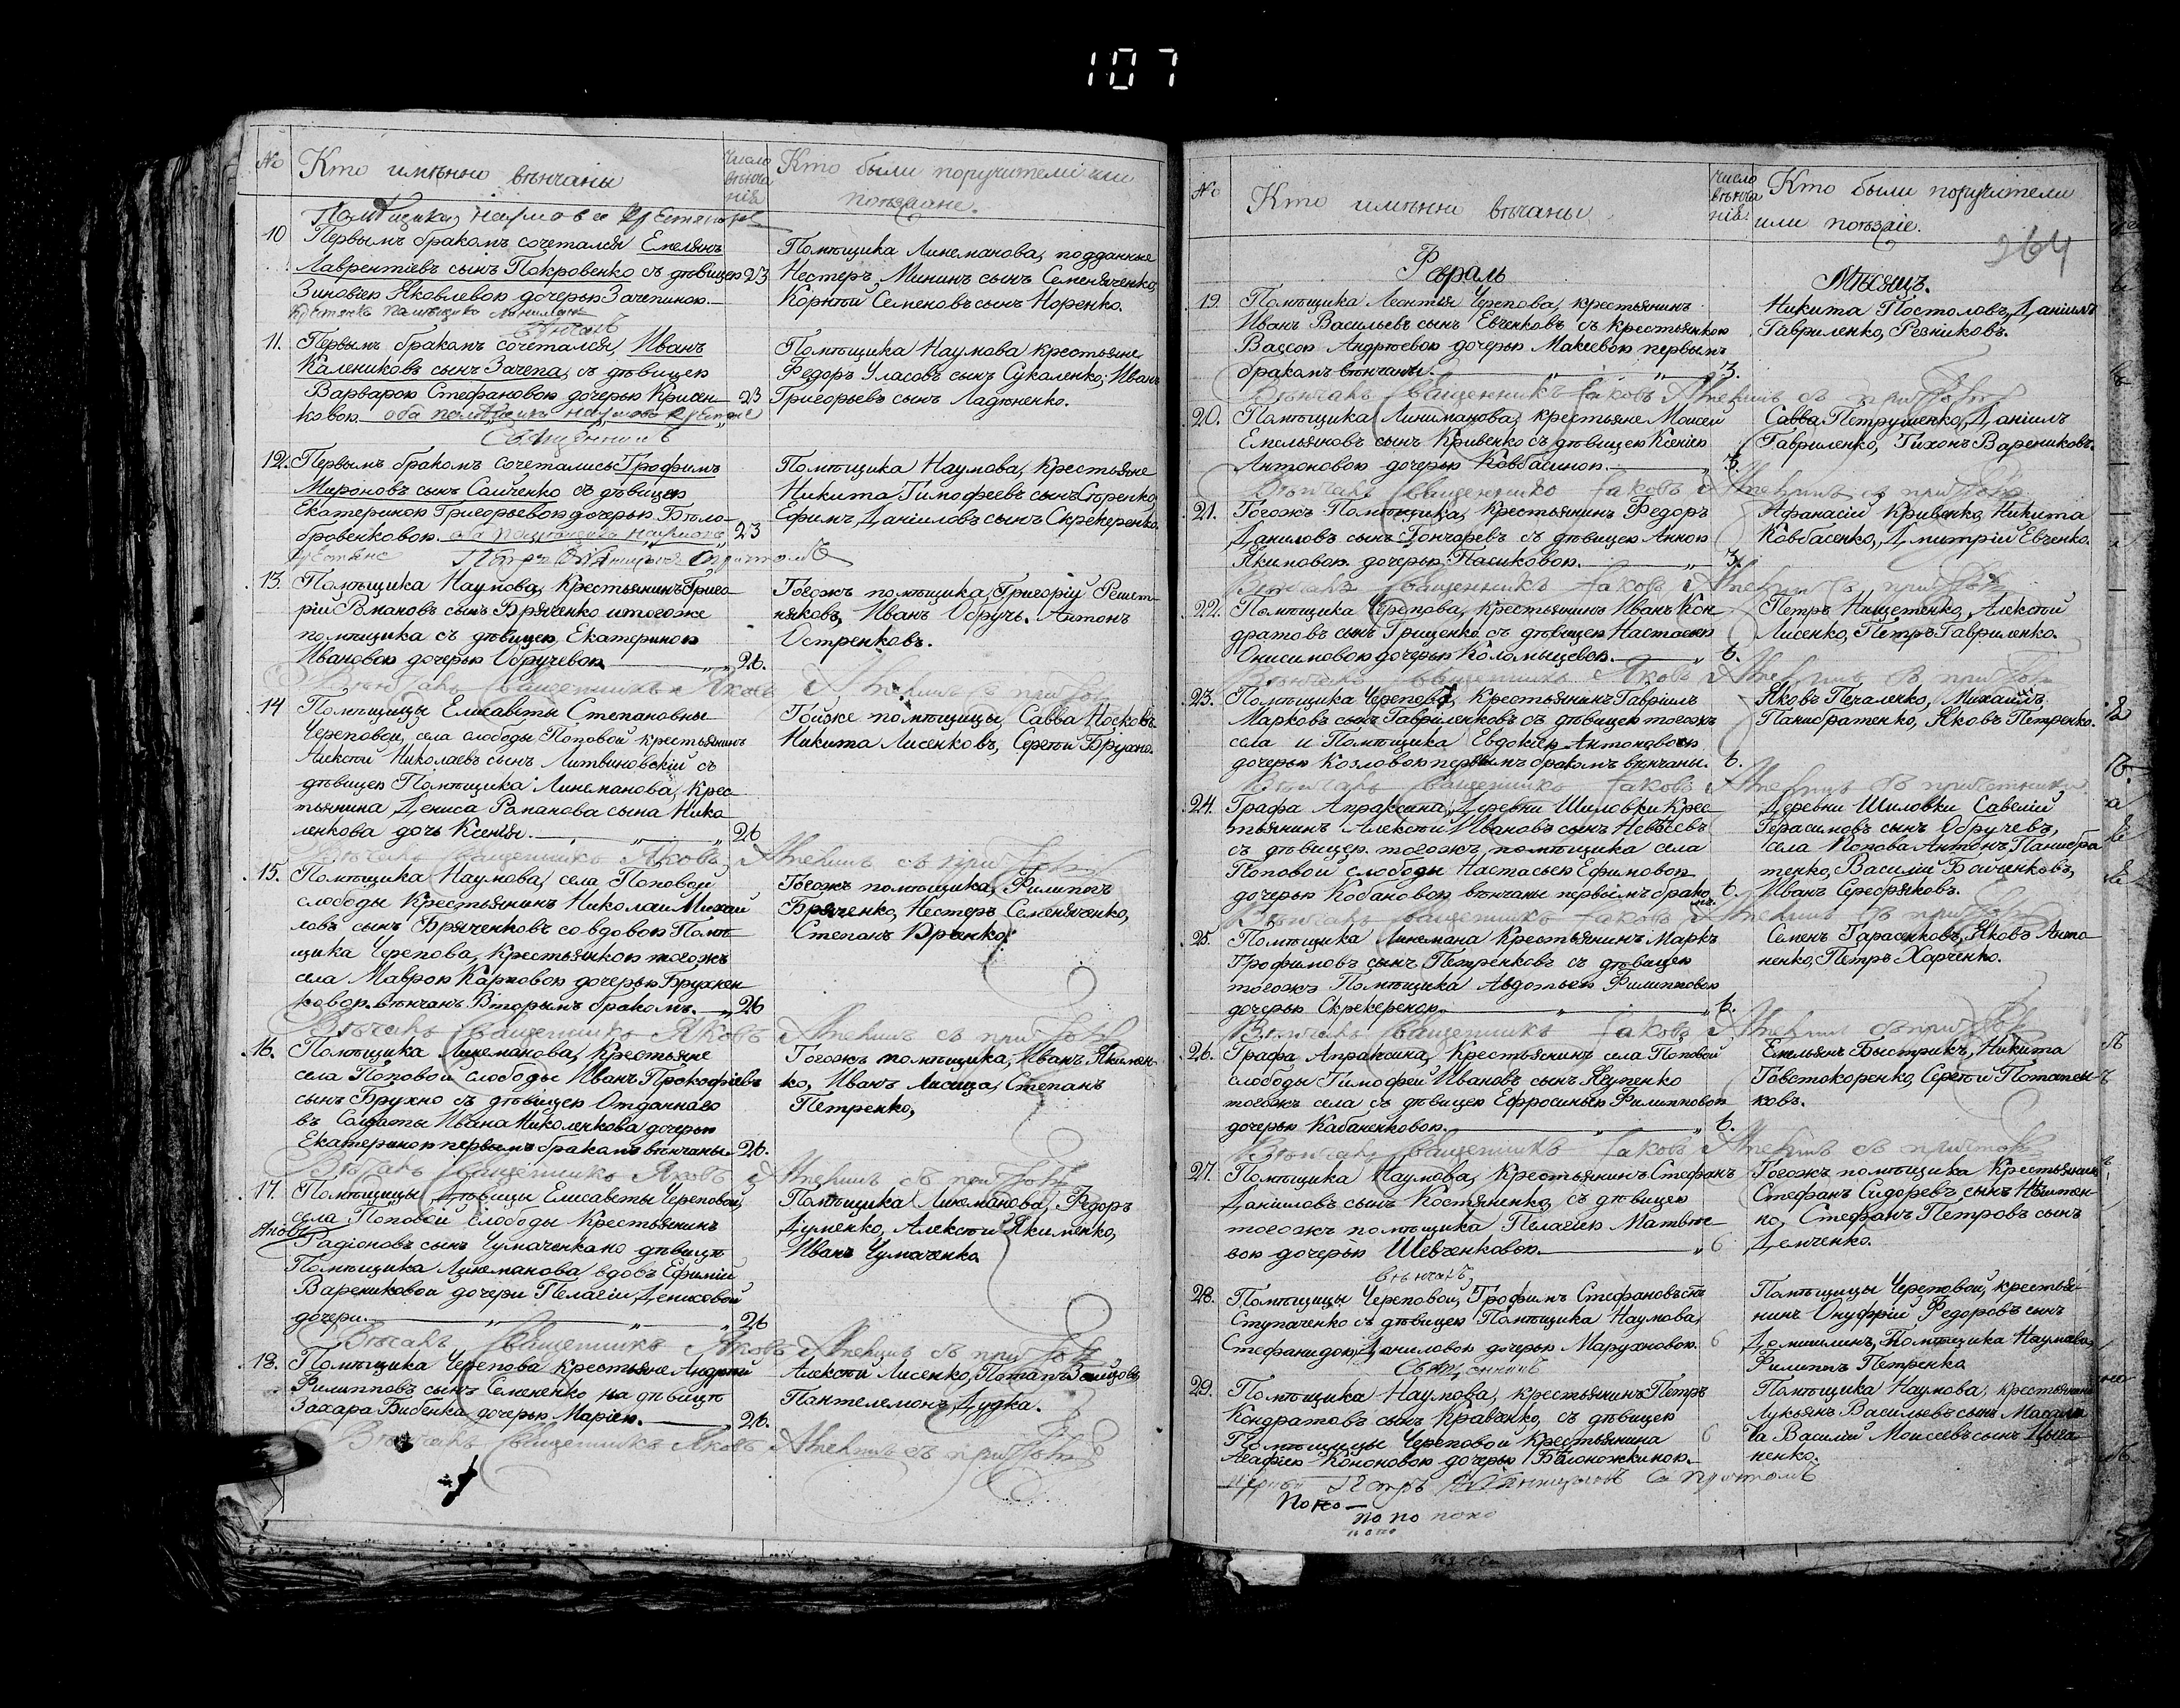 107
№
Кто имѣнно вѣнчаны
Число
вѣнча
нія
Кто были поручители или
поѣзжане.
Помѣщика Наумова крестьяне
10
Первымъ бракомъ сочетался Емелянъ
Лаврентіевъ сынъ Покровенко съ дѣвицею 23
Зиновіею Яковлевою дочерью Зачепиною.
крестьянка помѣщика Линиман
вѣнчалъ
Помѣщика Линеманова, подданные
Нестеръ Мининъ сынъ Семеняченко,
Корнѣй Семеновъ сынъ Норенко.
11.
Первымъ бракомъ сочетался, Иванъ
Калениковъ сынъ Зачепа, съ дѣвицею
Варварою Стефановою дочерью Крисен- 23
ковою. оба помѣщика Наумова крестьяне
Священникъ
Помѣщика Наумова крестьяне
Федоръ Уласовъ сынъ Сукаленко, Иванъ
Григорьевъ сынъ Ладѣненко.
12.
Первымъ бракомъ сочетались Трофимъ
Мироновъ сынъ Саиченко съ дѣвицею
Екатериною Григорьевою дочерью Бѣло-
бровенковою. оба помѣщика Наумова 23
крестьяне Петръ съ причтомъ
Помѣщика Наумова, Крестьяне
Никита Тимофеевъ сынъ
Ефимъ Даніиловъ сынъ Скрекеренко.
13.
Помѣщика Наумова, Крестьянинъ Григо-
рій Романовъ сынъ Бряченко и тогоже
помѣщика съ дѣвицею Екатериною
Ивановою дочерью Обручевою „ 26.
Вѣнчалъ Священникъ Яковъ съ при
Тогожъ помѣщика, Григорій Решет-
няковъ, Иванъ Обручь. Антонъ
Остренковъ.
14
Помѣщицы Елисаветы Степановны
Череповой, села слободы Поповой крестьянинъ
Алексѣй Николаевъ сынъ Литвиновскій съ
дѣвицею Помѣщика Линеманова, Крес-
тьянина Дениса Романова сына Нико-
ленкова дочь Ксенія. „ „ 26
Вѣнчалъ Священникъ Яковъ съ при
Тойже помѣщицы, Савва Носковъ
Никита Лисенковъ, Сергѣй Брухно.
15.
Помѣщика Наумова, села Поповой
слободы Крестьянинъ Николай Михай
ловъ сынъ Бряченковъ со вдовою Помѣ-
щика Черепова, Крестьянкою тогожъ
села Маврою Карповою дочерью Брухнен-
ковою. вѣнчанъ Вторымъ бракомъ. „ 26
Вѣнчалъ Священникъ Яковъ съ при
Тогожъ помѣщика, Филиппъ
Бряченко, Нестеръ Семеняченко,
Степанъ
16.
Помѣщика Линеманова, Крестьяне
села Поповой слободы Иванъ Прокофіевъ
сынъ Брухно съ дѣвицею Отданнаго
въ Солдаты Ивана Николенкова дочерью
Екатериною первымъ бракомъ вѣнчаны. 26.
Вѣнчалъ Священникъ Яковъ съ при
Тогожъ помѣщика, Иванъ Якимен-
ко, Иванъ Лисица, Степанъ
Петренко,
17.
Помѣщицы Дѣвицы Елисаветы Череповой,
села Поповой слободы Крестьянинъ
Яковъ
Радіоновъ сынъ Чумаченка но дѣвицѣ
Помѣщика Линеманова вдовѣ Ефимій
Варениковой дочери Пелагіи Денисовой
дочери. „ „ „ 26
Вѣнчалъ Священникъ Яковъ съ при
Помѣщика Линеманова, Федоръ
Алексѣй Якименко,
Иванъ Чумаченко
18.
Помѣщика Черепова Крестьяне Андрей
Филипповъ сынъ Семененко на дѣвицѣ
Захара Бибенка дочерью Маріею. 26.
Вѣнчалъ Священникъ Яковъ съ при
Алексѣй Лисенко, Потапъ
Пантелемонъ Дудка.
№
Кто имѣнно вѣнчаны
Число
вѣнча
нія.
Кто были поручители
или поѣзжіе.
264
Февраль
Мѣсяцъ.
19.
Помѣщика Леонтія Черепова, крестьянинъ
Иванъ Васильевъ сынъ Евченковъ съ крестьянкою
Вассою Андрѣевою дочерью Макеевою первымъ
бракомъ вѣнчаны. „ „ 3.
Вѣнчалъ Священникъ Іаковъ съ при
Никита Постоловъ, Даніилъ
Гавриленко, Резниковъ.
20.
Помѣщика Линиманова, крестьяне Моисей
Емельяновъ сынъ Кривенко съ дѣвицею Ксеніею
Антоновою дочерью Ковбасиною. „ 3.
Вѣнчалъ Священникъ Іаковъ съ при
Савва Петрушенко, Даніилъ
Гавриленко, Тихонъ Варениковъ.
21.
Тогожъ Помѣщика, Крестьянинъ Федоръ
Даниловъ сынъ Гончаревъ съ дѣвицею Анною
Якимовою дочерью Пасиковою. „ 3.
Вѣнчалъ Священникъ Іаковъ съ при
Афанасій Кривенко, Никита
Ковбасенко, Дмитрій Евченко.
22.
Помѣщика Черепова, крестьянинъ Иванъ Кон-
дратовъ сынъ Грищенко съ дѣвицею Настасьею
Онисимовою дочерью Коломыцевою. „ 6.
Вѣнчалъ Священникъ Яковъ съ при
Петръ Нищетенко, Алексѣй
Лисенко, Петръ Гавриленко.
23.
Помѣщика Черепова, Крестьянинъ Гавріилъ
Марковъ сынъ Гавриленковъ съ дѣвицею тогожъ
села и Помѣщика Евдокіею Антоновою
дочерью Козловою первымъ бракомъ вѣнчаны. 6.
Вѣнчалъ Священникъ Іаковъ съ причетники
Яковъ Печаленко, Михаилъ
Панибратенко, Яковъ Петренко.
24.
Графа Апраксина, Деревни Шиловки Крес-
тьянинъ Алексѣй Ивановъ сынъ
съ дѣвицею тогожъ помѣщика села
Поповой слободы Настасьею Ефимовою
дочерью Кобановою вѣнчаны первымъ брако 6.
мъ.
Вѣнчалъ Священникъ Іаковъ съ при
Деревни Шиловки Савелій
Герасимовъ сынъ Обручевъ,
села Попова Антонъ Панибра
тенко, Василій Бойченковъ,
Иванъ Серебряковъ.
25.
Помѣщика Линемана Крестьянинъ Маркъ
Трофимовъ сынъ Петренковъ съ дѣвицею
тогожъ Помѣщика Авдотьею Филипповою
дочерью Скрекереною. „ 6.
Вѣнчалъ Священникъ Іаковъ съ при
Семенъ Тарасенковъ, Яковъ Анто-
ненко, Петръ Харченко.
26.
Графа Апраксина, Крестьянинъ села Поповой
слободы Тимофей Ивановъ сынъ
тогожъ села съ дѣвицею Ефросиньею Филипповою
дочерью Кабаненковою. „ „ 6.
Вѣнчалъ Священникъ Іаковъ съ причтомъ
Емельянъ Быстрикъ, Никита
Товстокоренко, Сергѣй Потапен-
ковъ.
27.
Помѣщика Наумова, Крестьянинъ Стефанъ
Даніиловъ сынъ Костяненко, съ дѣвицею
тогожъ помѣщика Пелагіею Матвѣе
вою дочерью Шевченковою. „ 6
вѣнчалъ
Тогожъ помѣщика Крестьянинъ
Стефанъ Сидоревъ сынъ
но, Стефанъ Петровъ сынъ
Демченко.
28.
Помѣщицы Череповой, Трофимъ Стефановъ сынъ
Ступаченко съ дѣвицею Помѣщика Наумова,
Стефанидою Даниловою дочерью Марухновою. 6
Священникъ
Помѣщицы Череповой, крестья-
нинъ Онуфрій Федоровъ сынъ
Помѣщика Наумова,
Филиппъ Петренко
29.
Помѣщика Наумова, крестьянинъ Петръ
Кондратовъ сынъ Кравченко, съ дѣвицею
Помѣщицы Череповой Крестьянина 6
Агафіею Кононовою дочерью Бѣлоножкиною.
Петръ съ причтомъ
Помѣщика Наумова, крестьянинъ
Лукьянъ Васильевъ сынъ
Василій Моисеевъ сынъ Цыга-
ненко.
по но
по по поно